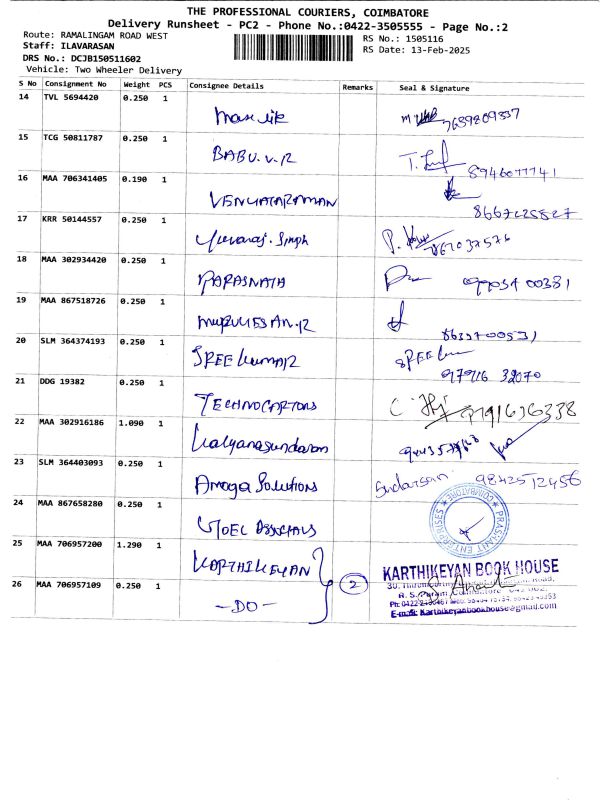 THE PROFESSIONAL COURIERS, COIMBATORE
Delivery Runsheet - PC2 - Phone No.:0422-3505555 - Page No.:2
Route: RAMALINGAM ROAD WEST
RS No.: 1505116
Staff: ILAVARASAN
RS Date: 13-Feb-2025
DRS No.: DCJB150511602
Vehicle: Two Wheeler Delivery
S No Consignment No Weight PCS Consignee Details Remarks Seal & Signature
14 TVL 5694420 0.250 1
15 TCG 50811787 0.250 1 BABU.V.R
8946077741
16 MAA 706341405 0.190 1 VENKATARAMAN
8667225827
17 KRR 50144557 0.250 1 Yuvaraj.Singh
18 MAA 302934420 0.250 1 PARASNATH
19 MAA 867518726 0.250 1 MURUGESAN.R
20 SLM 364374193 0.250 1 SREE KUMAR
97916 32070
21 DDG 19382 0.250 1 TECHNOCRATONS
9791636338
22 MAA 302916186 1.090 1 Kalyanasundaram
23 SLM 364403093 0.250 1 Amoga Solutions Sudarsan 9842512456
24 MAA 867658280 0.250 1
PRASHANT ENTERPRISES
COIMBATORE
25 MAA 706957200 1.290 1 KARTHIKEYAN
2
KARTHIKEYAN BOOK HOUSE
26 MAA 706957109 0.250 1 -DO-
E-mail: Karthikeyanbookhouse@gmail.com